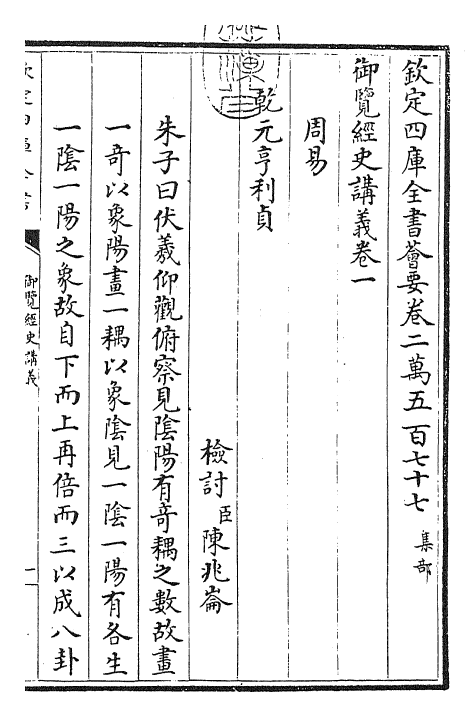 欽定四庫全書薈要卷二萬五百七十七 集部
御覽經史講義卷一
周易
乾元亨利貞
檢討臣陳兆崙
朱子曰伏羲仰觀俯察見陰陽有奇耦之數故畫
一奇以象陽畫一耦以象陰見一陰一陽有各生
一陰一陽之象故自下而上再倍而三以成八卦
御覽經史講義
一